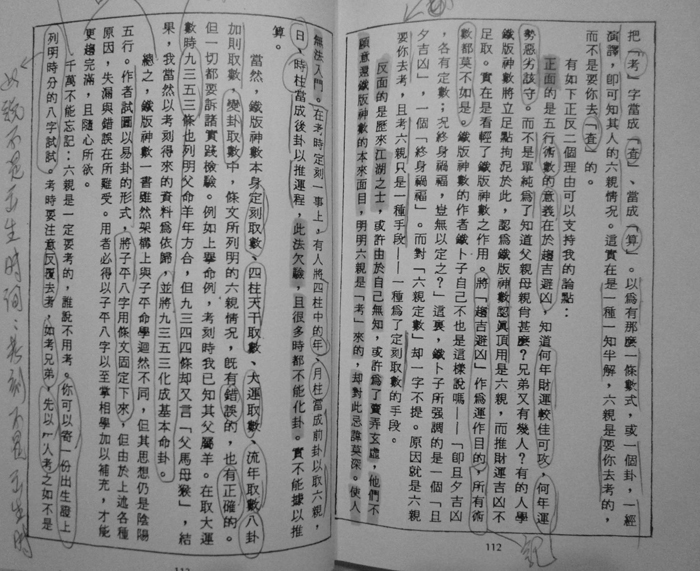 把「考」字當成「查」、當成「算」。以爲有那麼一條數式,或一個卦,一經
演譯,卽可知其人的六親情況。這實在是一種一知半解,六親是要你去考的,
而不是要你去「查」的。
有如下正反二個理由可以支持我的論點:
正面的是五行術數的意義在於趨吉避凶,知道何年財運較佳可攻,何年運
勢惡劣該守。而不是單純爲了知道父親母親肖甚麼?兄弟又有幾人?有的人學
鐵版神數將立足點拘況於此,認爲鐵版神數認眞頂用是六親,而推財運吉凶不
足取。實在是看輕了鐵版神數之作用。將「趨吉避凶」作爲運作目的,所有術
數都莫不如是。鐵版神數的作者鐵卜子自己不也是這樣說嗎——「卽旦夕吉凶
,各有定數;況終身禍福,豈無以定之?」這裏,鐵卜子所强調的是一個「旦
夕吉凶」,一個「終身禍福」。而對「六親定數」却一字不提。原因就是六親
要你去考,且考六親只是一種手段——一種爲了定刻取數的手段。
反面的是歷來江湖之士,或許由於自己無知,或許爲了賣弄玄虛,他們不
願意還鐵版神數的本來面目,明明六親是「考」來的,却對此忌諱莫深。使人
112
無法入門。在考時定刻一事上,有人將四柱中的年、月柱當成前卦以取六親,
日、時柱當成後卦以推運程,此法欠驗,且很多時都不能化卦。實不能據以推
算。
當然,鐵版神數本身定刻取數、四柱天干取數、大運取數、流年取數八卦
加則取數,變卦取數中,條文所列明的六親情況,旣有錯誤的,也有正確的。
但一切都要訴諸實踐檢驗。例如上舉命例,考刻時我已知其父屬羊。在取大運
數時九三五三條也列明父命羊年方合,但九三四四條却又言「父馬母猴」,結
果,我當然以考刻得來的資料爲依歸,並將九三五三化成基本命卦。
總之,鐵版神數一書雖然架構上與子平命學迴然不同,但其思想仍是陰陽
五行。作者試圖以易卦的形式,將子平八字用條文固定下來,但由於上述各種
原因,失漏與錯誤在所難受。用者必得以子平八字以至掌相學加以補充,才能
更趨完滿,且隨心所欲。
千萬不能忘記:六親是一定要考的,誰說不用考。你可以寄一份出生證上
列明時分的八字試試。考時要注意反覆去考,如考兄弟,先以一人考之如不是